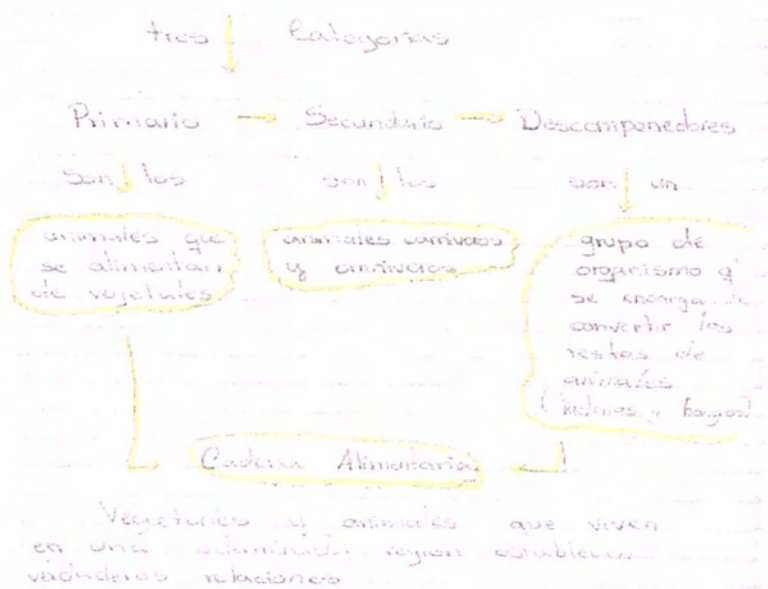 tres Categorias
Primario Secundario Descomponedores
son los
son los
son un
animales que
se alimentan
de vegetales
animales carnivoros
y omnivoros
grupo de
organismo q'
se encarga de
convertir los
restos de
animales
(bacterias y hongos)
Cadena Alimentaria
Vegetales y animales que viven
en una determinada region establecen
verdaderas relaciones